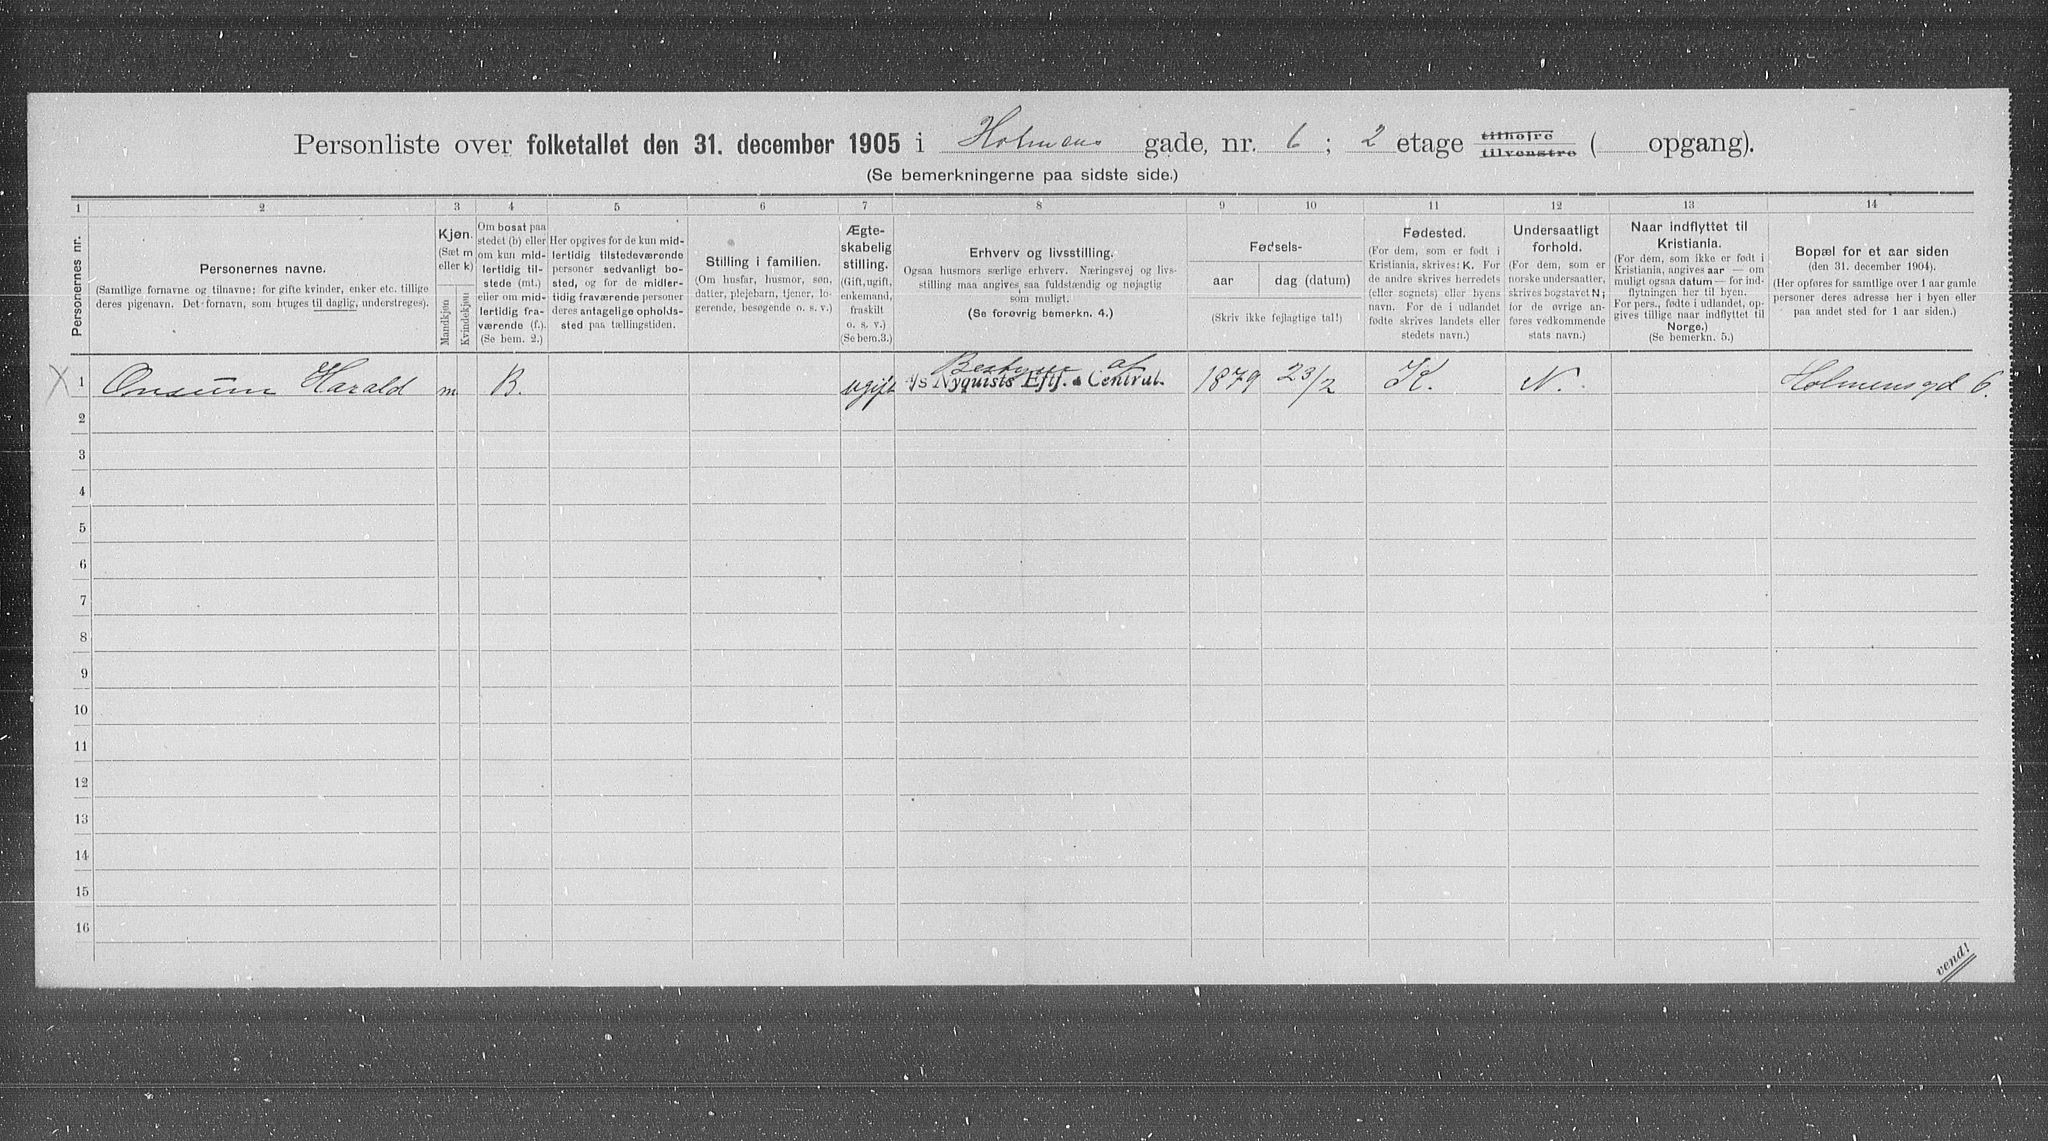 Personliste over folketallet den 31. december 1905 i Holmens gade, nr. 6 ; 2 etage tilhøjre tilvenstre ( opgang).
(Se bemerkningerne paa sidste side.)
1 2 3 4 5 6 7 8 9 10 11 12 13 14
Personernes nr.
Personernes navne.
(Samtlige fornavne og tilnavne; for gifte kvinder, enker etc. tillige
deres pigenavn. Det fornavn, som bruges til daglig, understreges).
Kjøn.
(Sæt m
eller k)
Mandkjøn
Kvindekjøn
Om bosat paa
stedet (b) eller
om kun mid-
lertidig til-
stede (mt.)
eller om mid-
lertidig fra-
værende (f.).
(Se bem. 2.)
Her opgives for de kun mid-
lertidig tilstedeværende
personer sedvanligt bo-
sted, og for de midler-
tidig fraværende personer
deres antagelige opholds-
sted paa tællingstiden.
Stilling i familien.
(Om husfar, husmor, søn,
datter, plejebarn, tjener, lo-
gerende, besøgende o. s. v.)
Ægte-
skabelig
stilling.
(Gift, ugift,
enkemand,
fraskilt
o. s. v.)
(Se bem.3.)
Erhverv og livsstilling.
Ogsaa husmors særlige erhverv. Næringsvej og livs-
stilling maa angives saa fuldstændig og nøjagtig
som muligt.
(Se forøvrig bemerkn. 4.)
Fødsels-
aar dag (datum)
(Skriv ikke fejlagtige tal!)
Fødested.
(For dem, som er født i
Kristiania, skrives: K. For
de andre skrives herredets
(eller sognets) eller byens
navn. For de i udlandet
fødte skrives landets eller
stedets navn.)
Undersaatligt
forhold.
(For dem, som er
norske undersaatter,
skrives bogstavet N;
for de øvrige an-
føres vedkommende
stats navn.)
Naar indflyttet til
Kristiania.
(For dem, som ikke er født i
Kristiania, angives aar — om
muligt ogsaa datum — for ind-
flytningen her til byen.
For pers., fødte i udlandet, op-
gives tillige naar indflyttet til
Norge.)
(Se bemerkn. 5.)
Bopæl for et aar siden
(den 31. december 1904).
(Her opføres for samtlige over 1 aar gamle
personer deres adresse her i byen eller
paa andet sted for 1 aar siden.)
X 1 Onsum Harald m B. ugift Bestyrer af A/S Nyquists Eftf. a Central. 1879 23/2 K. N. Holmensgd 6.
2
3
4
5
6
7
8
9
10
11
12
13
14
15
16
vend!